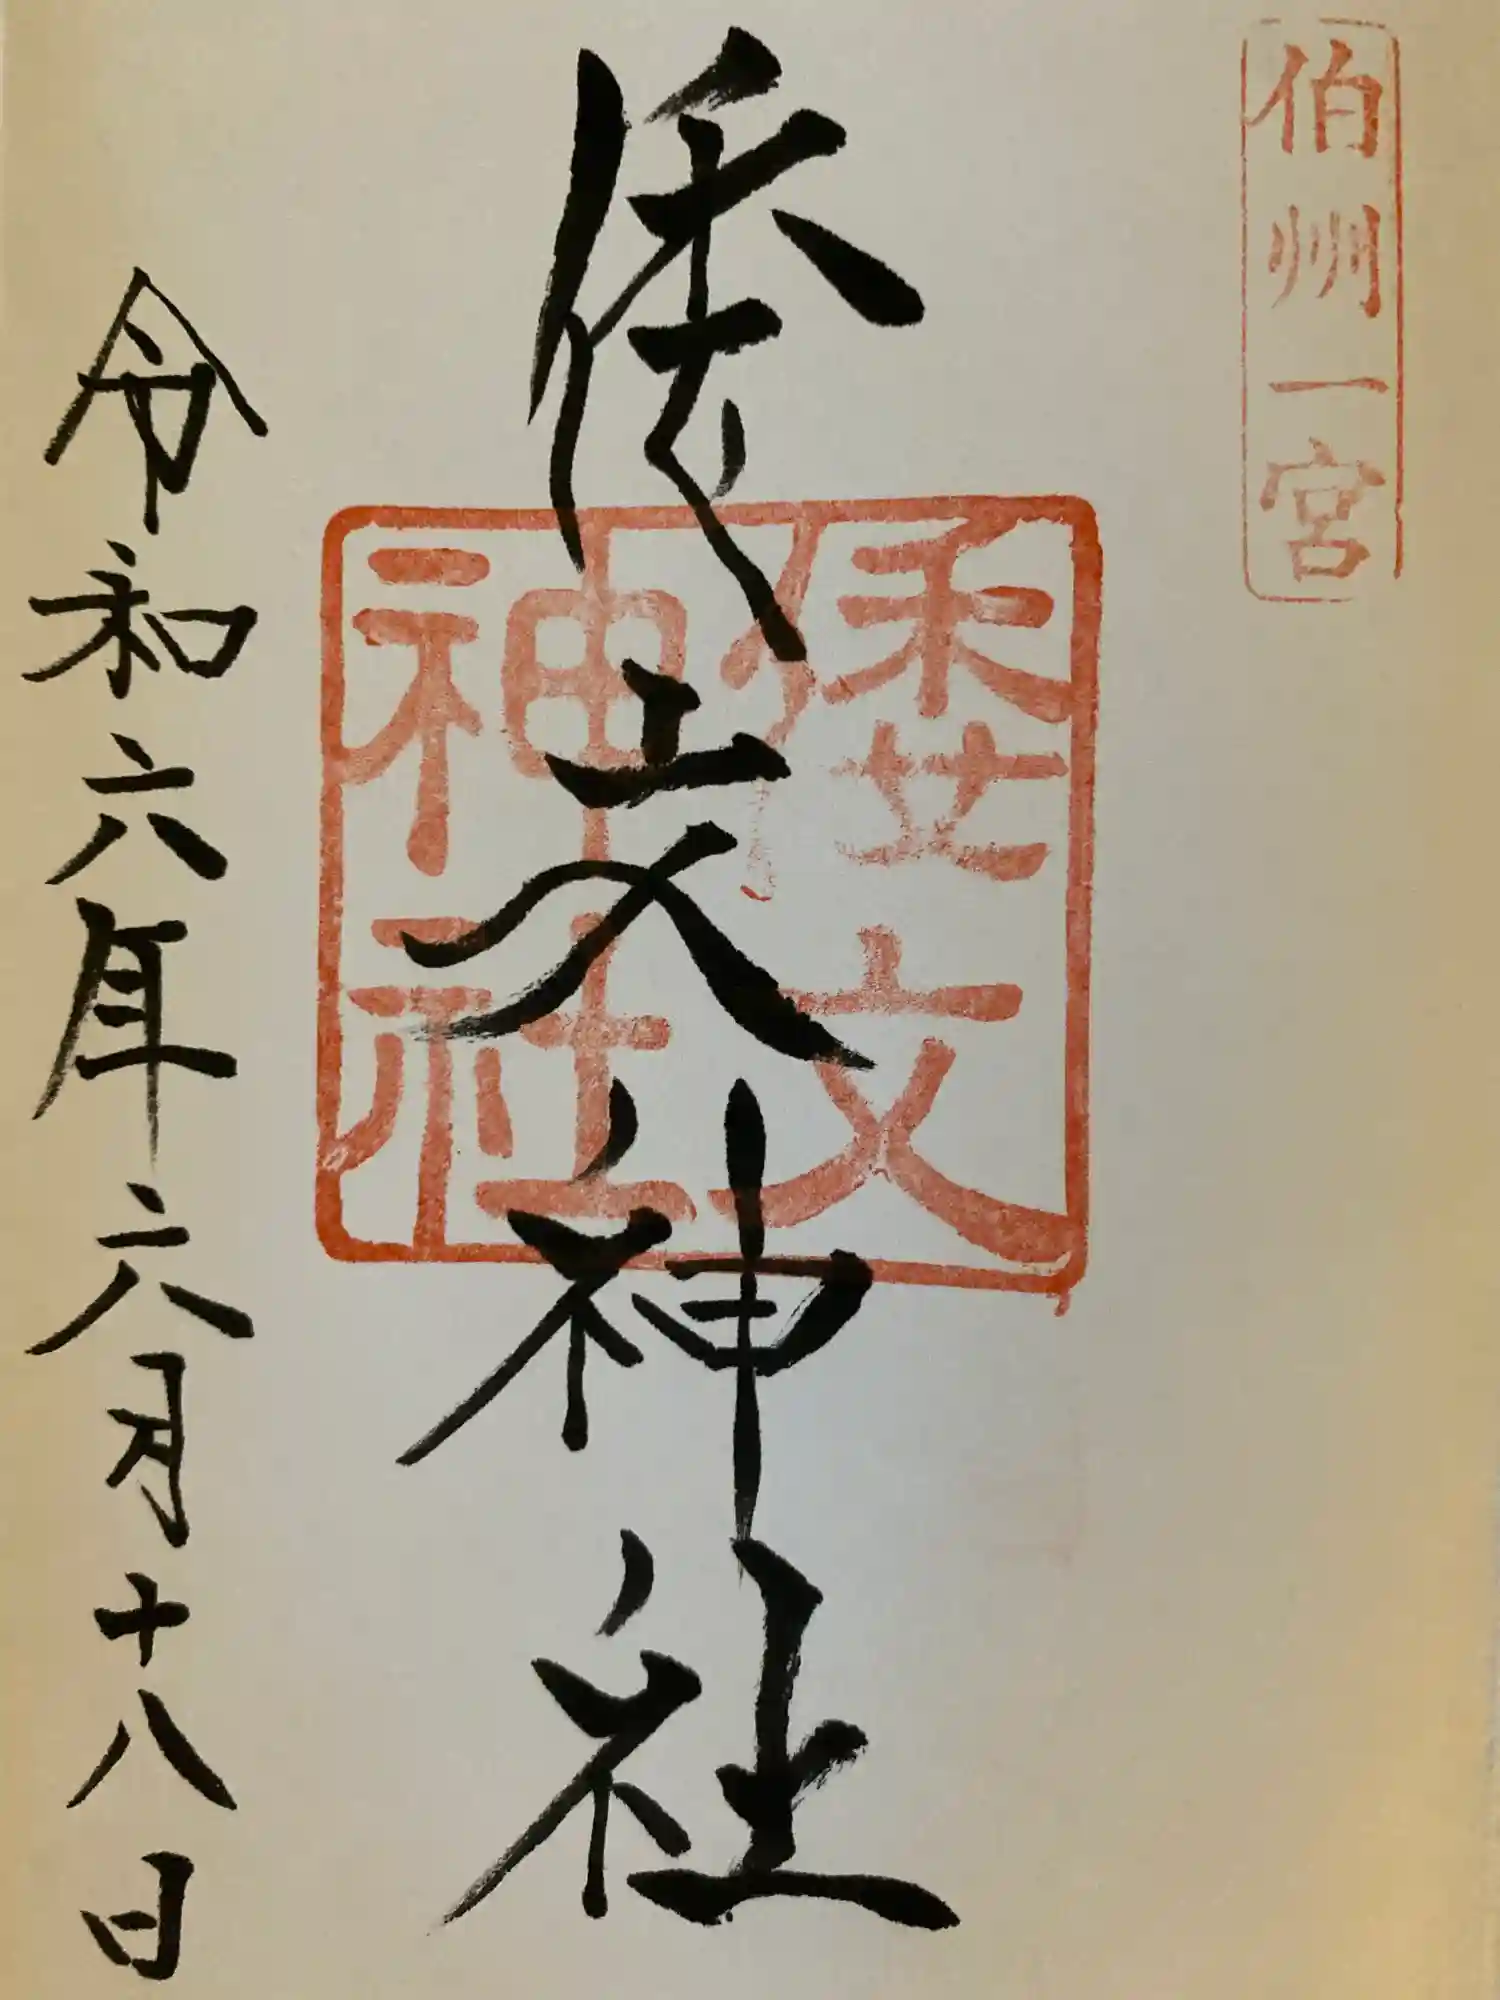 伯州一宮
倭文
神社
倭文神社
令和六年六月十八日